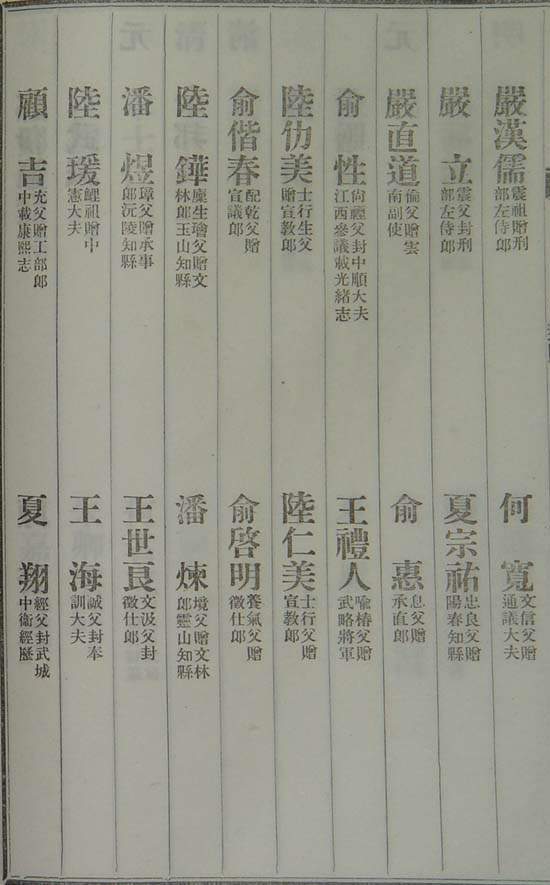 嚴漢儒 震祖贈刑部左侍郎
何寬 文信父贈通議大夫
嚴立 震父封刑部左侍郎
夏宗祐 忠良父贈陽春知縣
嚴直道 倫父贈雲南副使
俞惠 息父贈承直郎
俞性 向禋父封中順大夫江西參議載光緒志
王禮人 喻椿父贈武略將軍
陸仂美 士行生父贈宣教郎
陸仁美 士行父贈宣教郎
俞偕春 配乾父贈宣議郎
俞啓明 養氣父贈徵仕郎
陸鏵 廩生瑜父贈文林郎玉山知縣
潘煉 境父贈文林郎靈山知縣
潘煜 璋父贈承事郎沅陵知縣
王世良 文汲父封徵仕郎
陸瑗 鯉祖贈中憲大夫
王海 誠父封奉訓大夫
顧吉 充父贈工部郎中載康熙志
夏翔 經父封武城中衛經歷